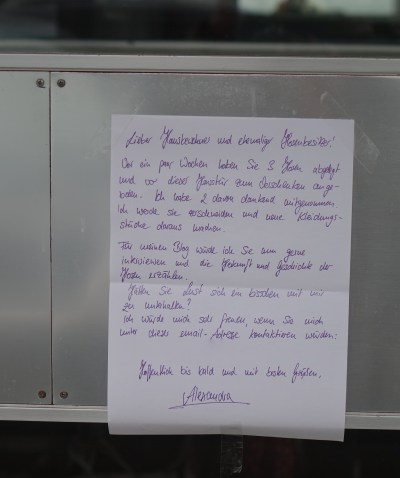 Lieber Hausbewohner und ehemaliger Hosenbesitzer!
Vor ein paar Wochen haben Sie 3 Hosen abgelegt
und vor dieser Haustür zum Verschenken ange-
boten. Ich habe 2 davon dankend mitgenommen.
Ich werde sie zerschneiden und neue Kleidungs-
stücke daraus machen.
Für meinen Blog würde ich Sie nun gerne
interviewen und die Herkunft und Geschichte der
Hosen erzählen.
Hätten Sie Lust sich ein bisschen mit mir
zu unterhalten?
Ich würde mich sehr freuen, wenn Sie mich
unter dieser email-Adresse kontaktieren würden:
Hoffentlich bis bald und mit besten Grüßen,
Alexandra